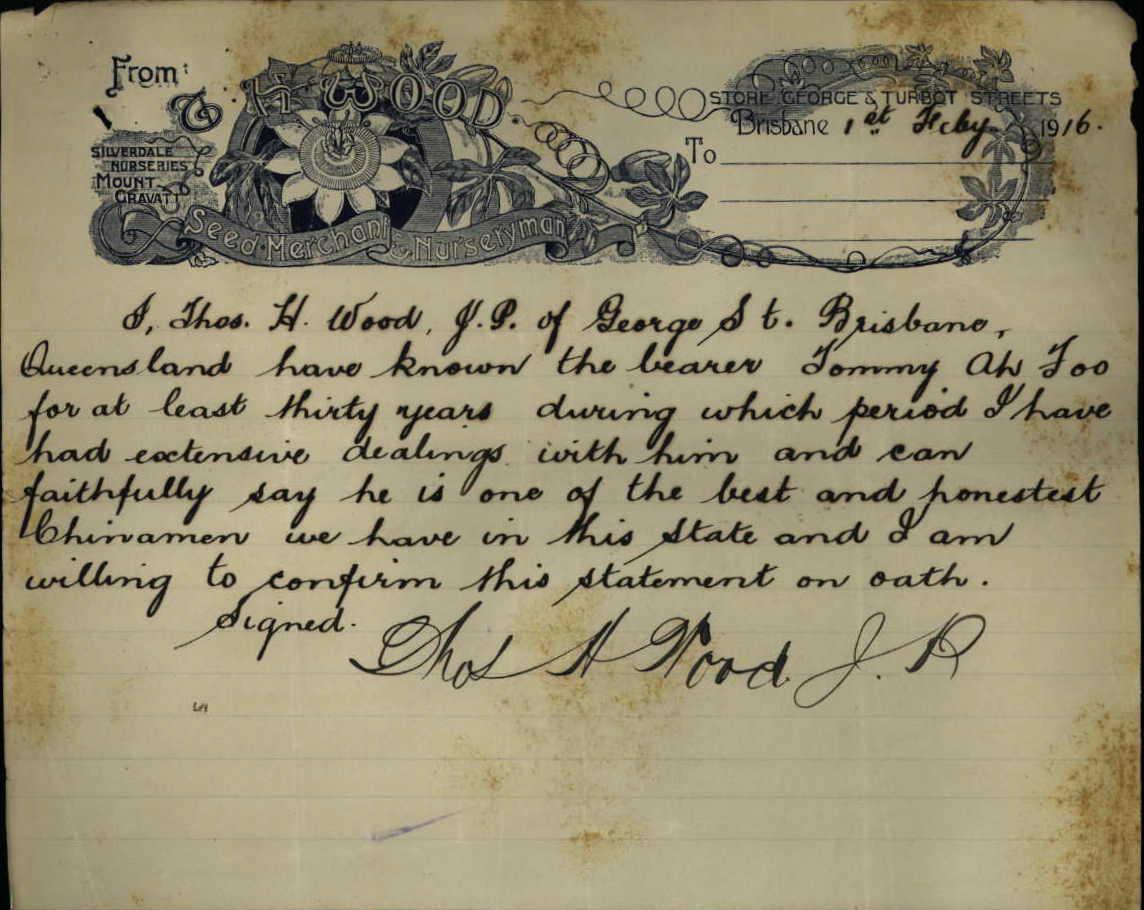 From:
T. H. WOOD.
SILVERDALE
NURSERIES
MOUNT
GRAVATT
Seed Merchant & Nurseryman
STORE GEORGE & TURBOT STREETS
Brisbane 1st Feby 1916.
To
I, Thos. H. Wood, J.P. of George St. Brisbane,
Queensland have known the bearer Tommy Ah Foo
for at least thirty years during which period I have
had extensive dealings with him and can
faithfully say he is one of the best and honestest
Chinamen we have in this state and I am
willing to confirm this statement on oath.
Signed.
Thos H Wood J.P